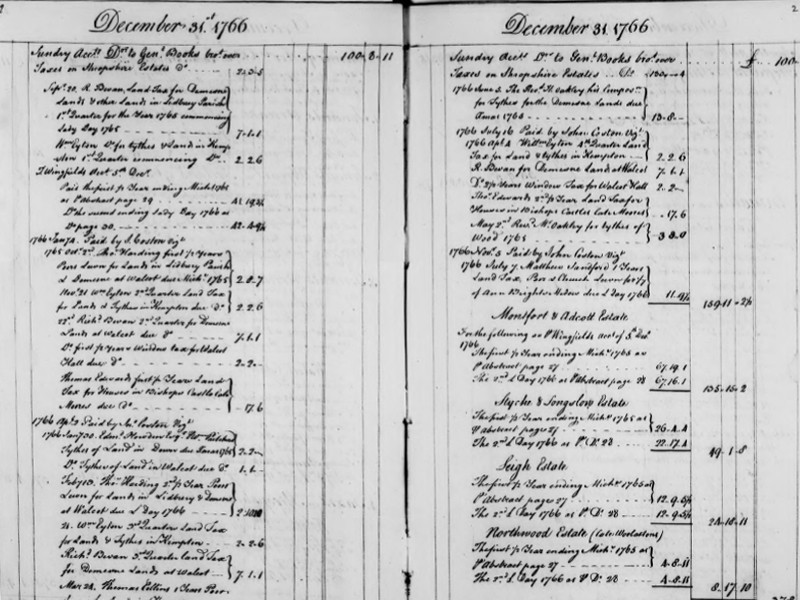 December 31.st 1766
Sundry Acc.ts D.rs to Gen.l Books bro.t over 100-8-11
Taxes on Shropshire Estates D.o 2-3-5
Sep.t 20. R. Bwan, Land Tax for Demesne
Lands & other Lands in Lidbury Parish
1.st Quarter for the Year 1765 commencing
Lady Day 1765 7-1-1
W.m Eyton D.o for tythes & Land in Kemp
ston 1.st Quarter commencing D.o 2-2-6
J. Wingfields Acc.t 5.th Dec.r
Paid the first ½ Year ending Mich.s 1765
as P Abstract page 29
D.o the second ending Lady Day 1766 as
D.o page 30
1766 Jan.y 4. Paid by J. Coston Viz.t
1765 Oct.r 2.d Tho.s Harding first ½ Years
Poor Lewn for Lands in Lidbury Parish
& Demesne at Walcot due Mich.s 1765 2-0-7
Nov. 21 W.m Eyton 2.d Quarter Land Tax
for Lands & Tythes in Kempton due D.o 2-2-6
22.d Rich.d Bwan 2.d Quarter for Demesne
Lands at Walcot due D.o 7-1-1
D.o first ½ Years Window tax for Walcot
Hall due D.o 2-2-
Thomas Edwards first ½ Years Land
Tax for Houses in Bishops Castle late
Mores due D.o -17-6
1766 Ap.l 2 Paid by Jn.o Coston Viz.t
1766 Jan.y 30. Edm.d
Tythes of Land in due 1765 2-2-
D.o Tythes of Land in Walcot due D.o 1-1-
Feb.y 13. Tho.s Harding 2.d ½ Year Poor
Lewn for Lands in Lidbury & Demesne
at Walcot due L Day 1766
21. W.m Eyton 3.d Quarter Land Tax
for Lands & Tythes in Kempton 2-2-6
Rich.d Bwan 3.d Quarter land Tax
for Demesne Lands at Walcot 7-1-1
Mar 24. Thomas Collins 1 Years Poor
2
December 31. 1766
Sundry Acc.ts D.rs to Gen.l Books bro.t over £ 100-
Taxes on Shropshire Estates D.o
1766 June 5. The Rev.d H. Oakley his Compos.n
for Tythes for the Demesne Lands due
1765 13-8-
1766 July 16 Paid by John Coston Viz.t
1766 Ap.l 4 Will.m Eyton 4.th Quarter Land
Tax for Land & tythes in Kempton 2-2-6
R. Bwan for Demesne Land at Walcot 7-1-1
D.o 2 ½ Years Window Tax for Walcot Hall 2-2-
Tho.s Edwards 2.d ½ Year Land Tax for
Houses in Bishops Castle late Mores -17-6
May 2.d Rev.d M.r Oakley for tythes of
Wood 1765 3-3-0
1766 Nov.r 3 Paid by John Coston Viz.t
1766 July 7 Matthew Sandford 1 Years
Land Tax, Poor & Church Lewn for ½
of Ann Brights Meadow due L day 1766
Montfort & Adcott Estate
For the following as P Wingfields acc.t of 5 Dec.r
1766
The first ½ Year ending Mich.s 1765 as
P Abstract page 27 67-19-1
The 2.nd L Day 1766 as P Abstract page 28 67-16-1
135-15-2
Styche & Longslow Estate
The first ½ Year ending Mich.s 1765 as
P abstract page 27 26-4-4
The 2.nd L Day 1766 as P. D.o 28 22-17-4
49-1-8
Leigh Estate
The first ½ Year ending Mich.s 1765 as
P Abstract page 27 12-9-5½
The 2.nd L Day 1766 as P D.o 28 12-9-5½
24-18-11
Northwood Estate (late Woolastons)
The first ½ Year ending Mich.s 1765 as
P Abstract page 27 4-8-11
The 2.nd L Day 1766 as P D.o 28 4-8-11
8-17-10